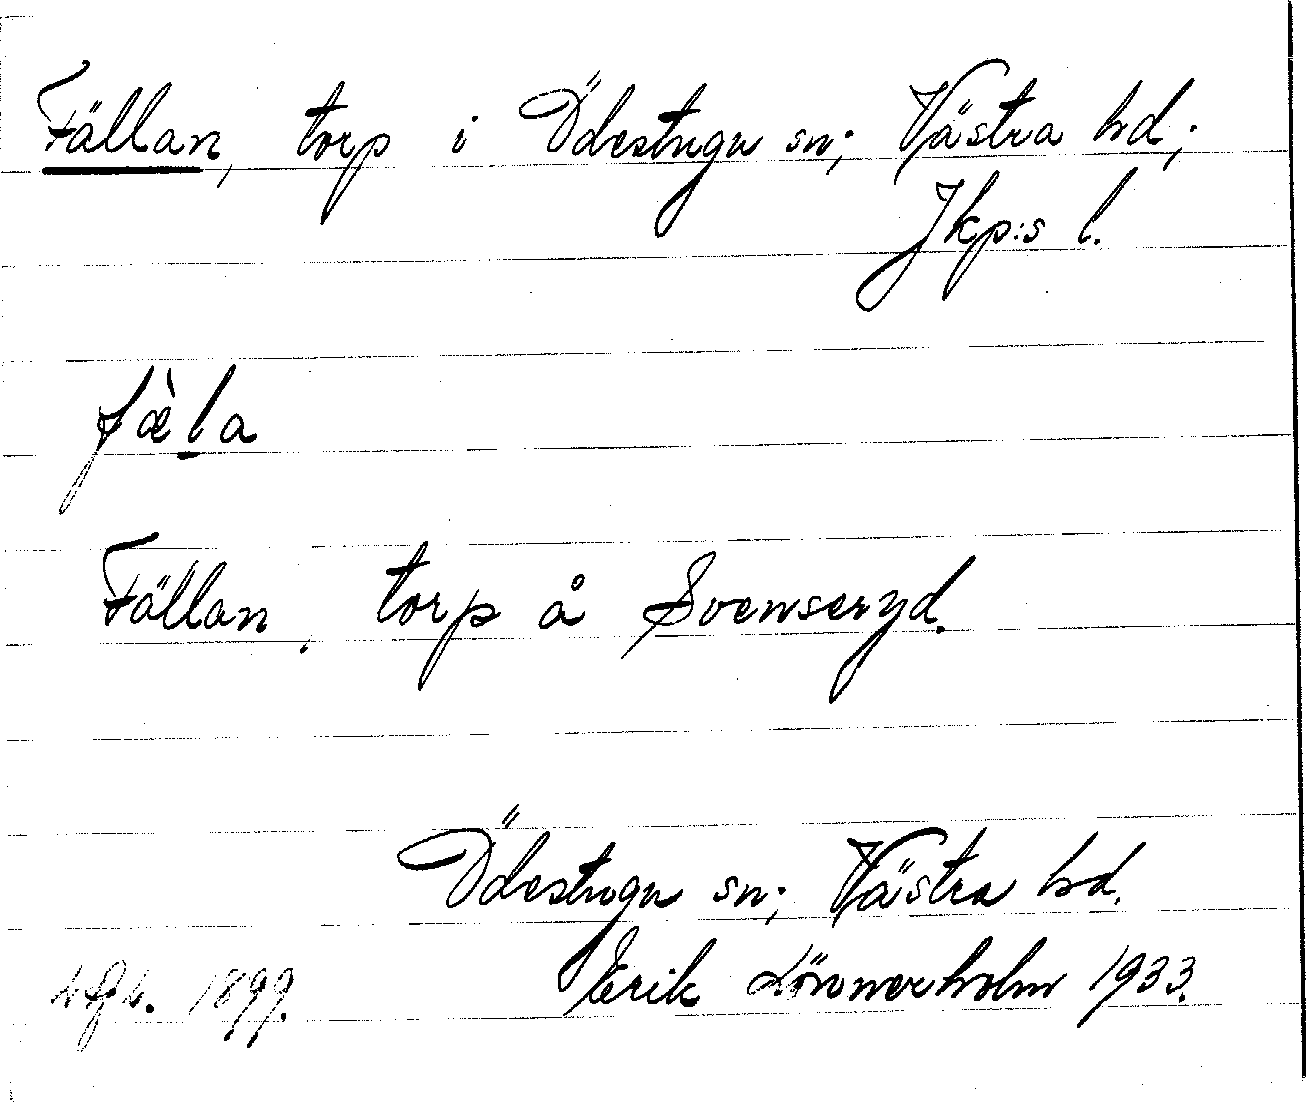 Fällan, torp i Ödestugu sn; Västra hd;
Jkp:s l.
fæ̀l̠a
Fällan, torp å Svenseryd.
Ödestugu sn; Västra hd.
1899. Erik Lönnerholm 1933.